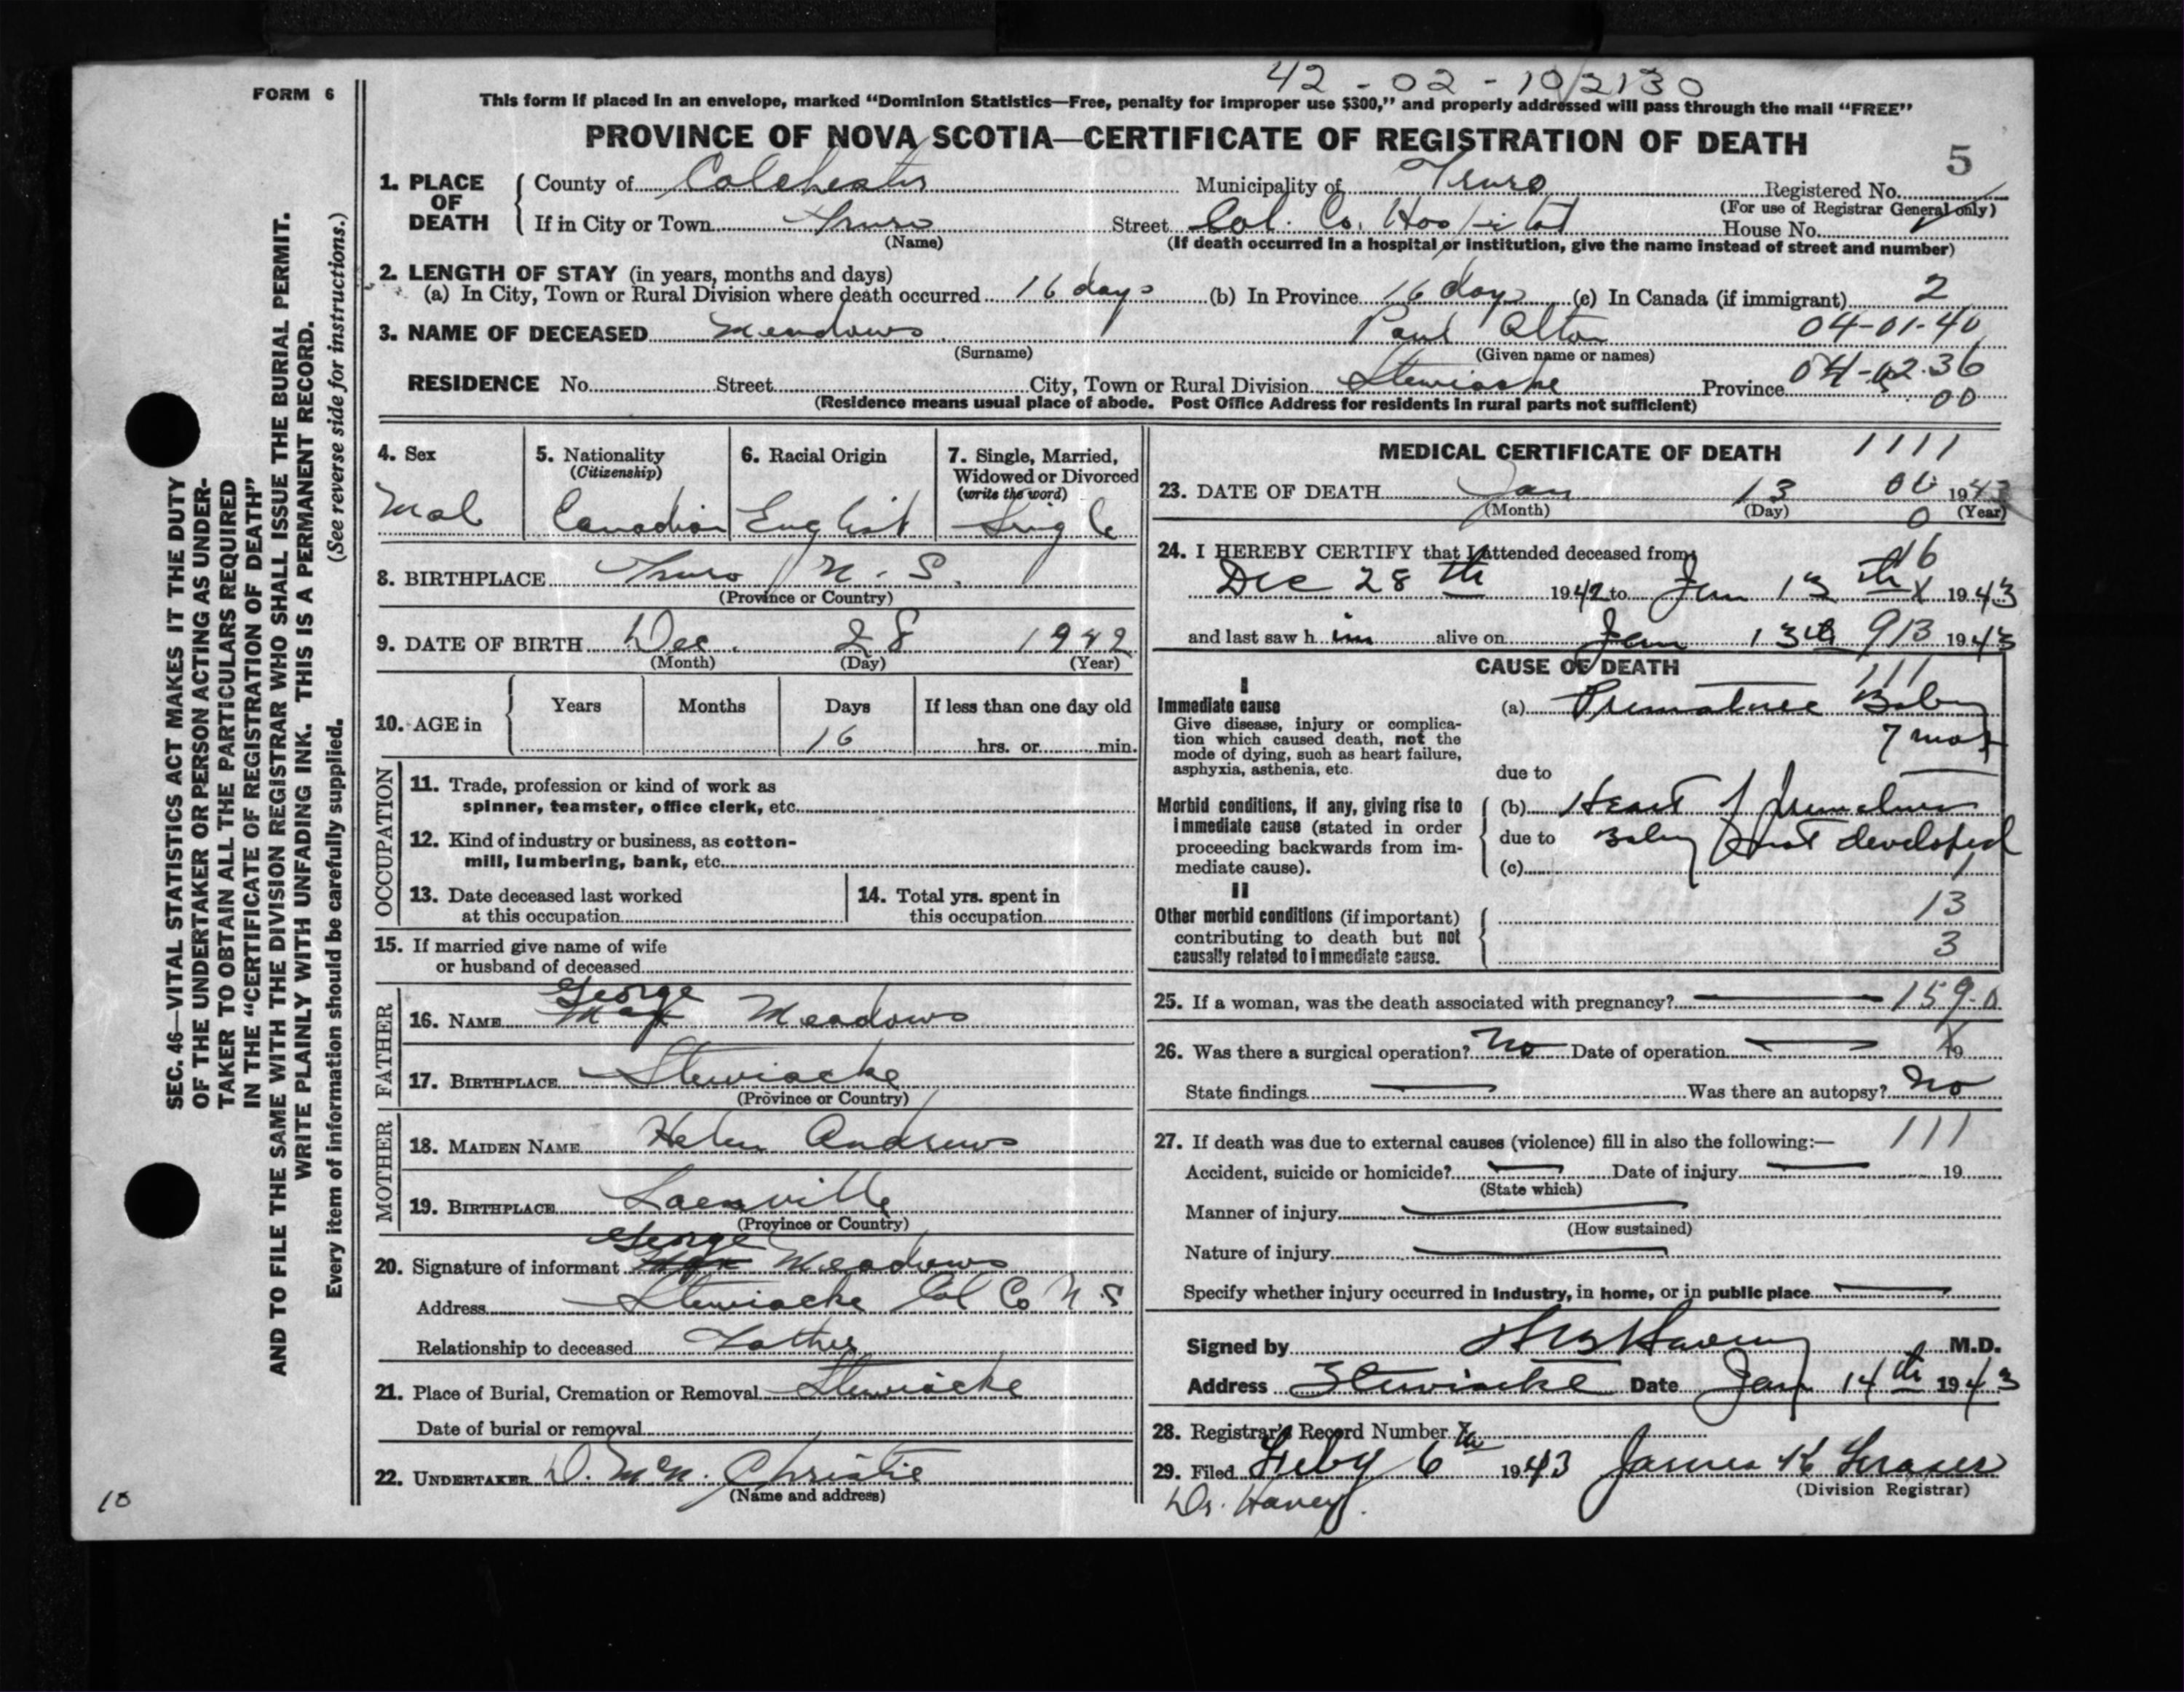 42-02-102130
FORM 6
This form if placed in an envelope, marked "Dominion Statistics—Free, penalty for improper use $300," and properly addressed will pass through the mail "FREE"
PROVINCE OF NOVA SCOTIA—CERTIFICATE OF REGISTRATION OF DEATH
5
1. PLACE OF DEATH { County of Colchester Municipality of Truro Registered No.
(For use of Registrar General only)
If in City or Town Truro Street Col. Co. Hospital House No.
(Name) (If death occurred in a hospital or institution, give the name instead of street and number)
2. LENGTH OF STAY (in years, months and days)
(a) In City, Town or Rural Division where death occurred 16 days (b) In Province 16 days (c) In Canada (if immigrant) 2
3. NAME OF DECEASED Meadows Paul Alton 04-01-40
(Surname) (Given name or names)
RESIDENCE No. Street City, Town or Rural Division Stewiacke Province 04-02-36
00
(Residence means usual place of abode. Post Office Address for residents in rural parts not sufficient)
4. Sex 5. Nationality (Citizenship) 6. Racial Origin 7. Single, Married, Widowed or Divorced (write the word)
Mal Canadian English Single
8. BIRTHPLACE Truro N.S.
(Province or Country)
9. DATE OF BIRTH Dec. 28 1942
(Month) (Day) (Year)
10. AGE in { Years Months Days If less than one day old
16 hrs. or min.
OCCUPATION
11. Trade, profession or kind of work as
spinner, teamster, office clerk, etc.
12. Kind of industry or business, as cotton-
mill, lumbering, bank, etc.
13. Date deceased last worked
at this occupation
14. Total yrs. spent in
this occupation
15. If married give name of wife
or husband of deceased
FATHER
George
16. NAME Max Meadows
17. BIRTHPLACE Stewiacke
(Province or Country)
MOTHER
18. MAIDEN NAME Helen Andrews
19. BIRTHPLACE
(Province or Country)
George
20. Signature of informant Max Meadows
Address Stewiacke Col Co N.S
Relationship to deceased Father
21. Place of Burial, Cremation or Removal Stewiacke
Date of burial or removal
22. UNDERTAKER D. McN. Christie
(Name and address)
MEDICAL CERTIFICATE OF DEATH 1111
23. DATE OF DEATH Jan 13 1943
(Month) (Day) (Year)
0
24. I HEREBY CERTIFY that I attended deceased from
16
Dec 28th 1942 to Jan 13th X 1943
and last saw h im alive on Jan 13th 913 1943
CAUSE OF DEATH
111
I
Immediate cause
Give disease, injury or complica-
tion which caused death, not the
mode of dying, such as heart failure,
asphyxia, asthenia, etc.
(a) Premature Baby
7 mos
due to
Morbid conditions, if any, giving rise to
immediate cause (stated in order
proceeding backwards from im-
mediate cause).
(b) Heart of premature
due to Baby not developed
(c) 1
II
Other morbid conditions (if important)
contributing to death but not
causally related to immediate cause.
13
3
25. If a woman, was the death associated with pregnancy? 159-0
26. Was there a surgical operation? No Date of operation 19
State findings Was there an autopsy? No
27. If death was due to external causes (violence) fill in also the following:— 111
Accident, suicide or homicide? Date of injury 19
(State which)
Manner of injury
(How sustained)
Nature of injury
Specify whether injury occurred in Industry, in home, or in public place
Signed by Havey M.D.
Address Stewiacke Date Jan 14th 1943
28. Registrar's Record Number
29. Filed Feby 6th 1943 James K Fraser
(Division Registrar)
Dr. Havey.
SEC. 46—VITAL STATISTICS ACT MAKES IT THE DUTY
OF THE UNDERTAKER OR PERSON ACTING AS UNDER-
TAKER TO OBTAIN ALL THE PARTICULARS REQUIRED
IN THE "CERTIFICATE OF REGISTRATION OF DEATH"
AND TO FILE THE SAME WITH THE DIVISION REGISTRAR WHO SHALL ISSUE THE BURIAL PERMIT.
WRITE PLAINLY WITH UNFADING INK. THIS IS A PERMANENT RECORD.
Every item of information should be carefully supplied. (See reverse side for instructions.)
10